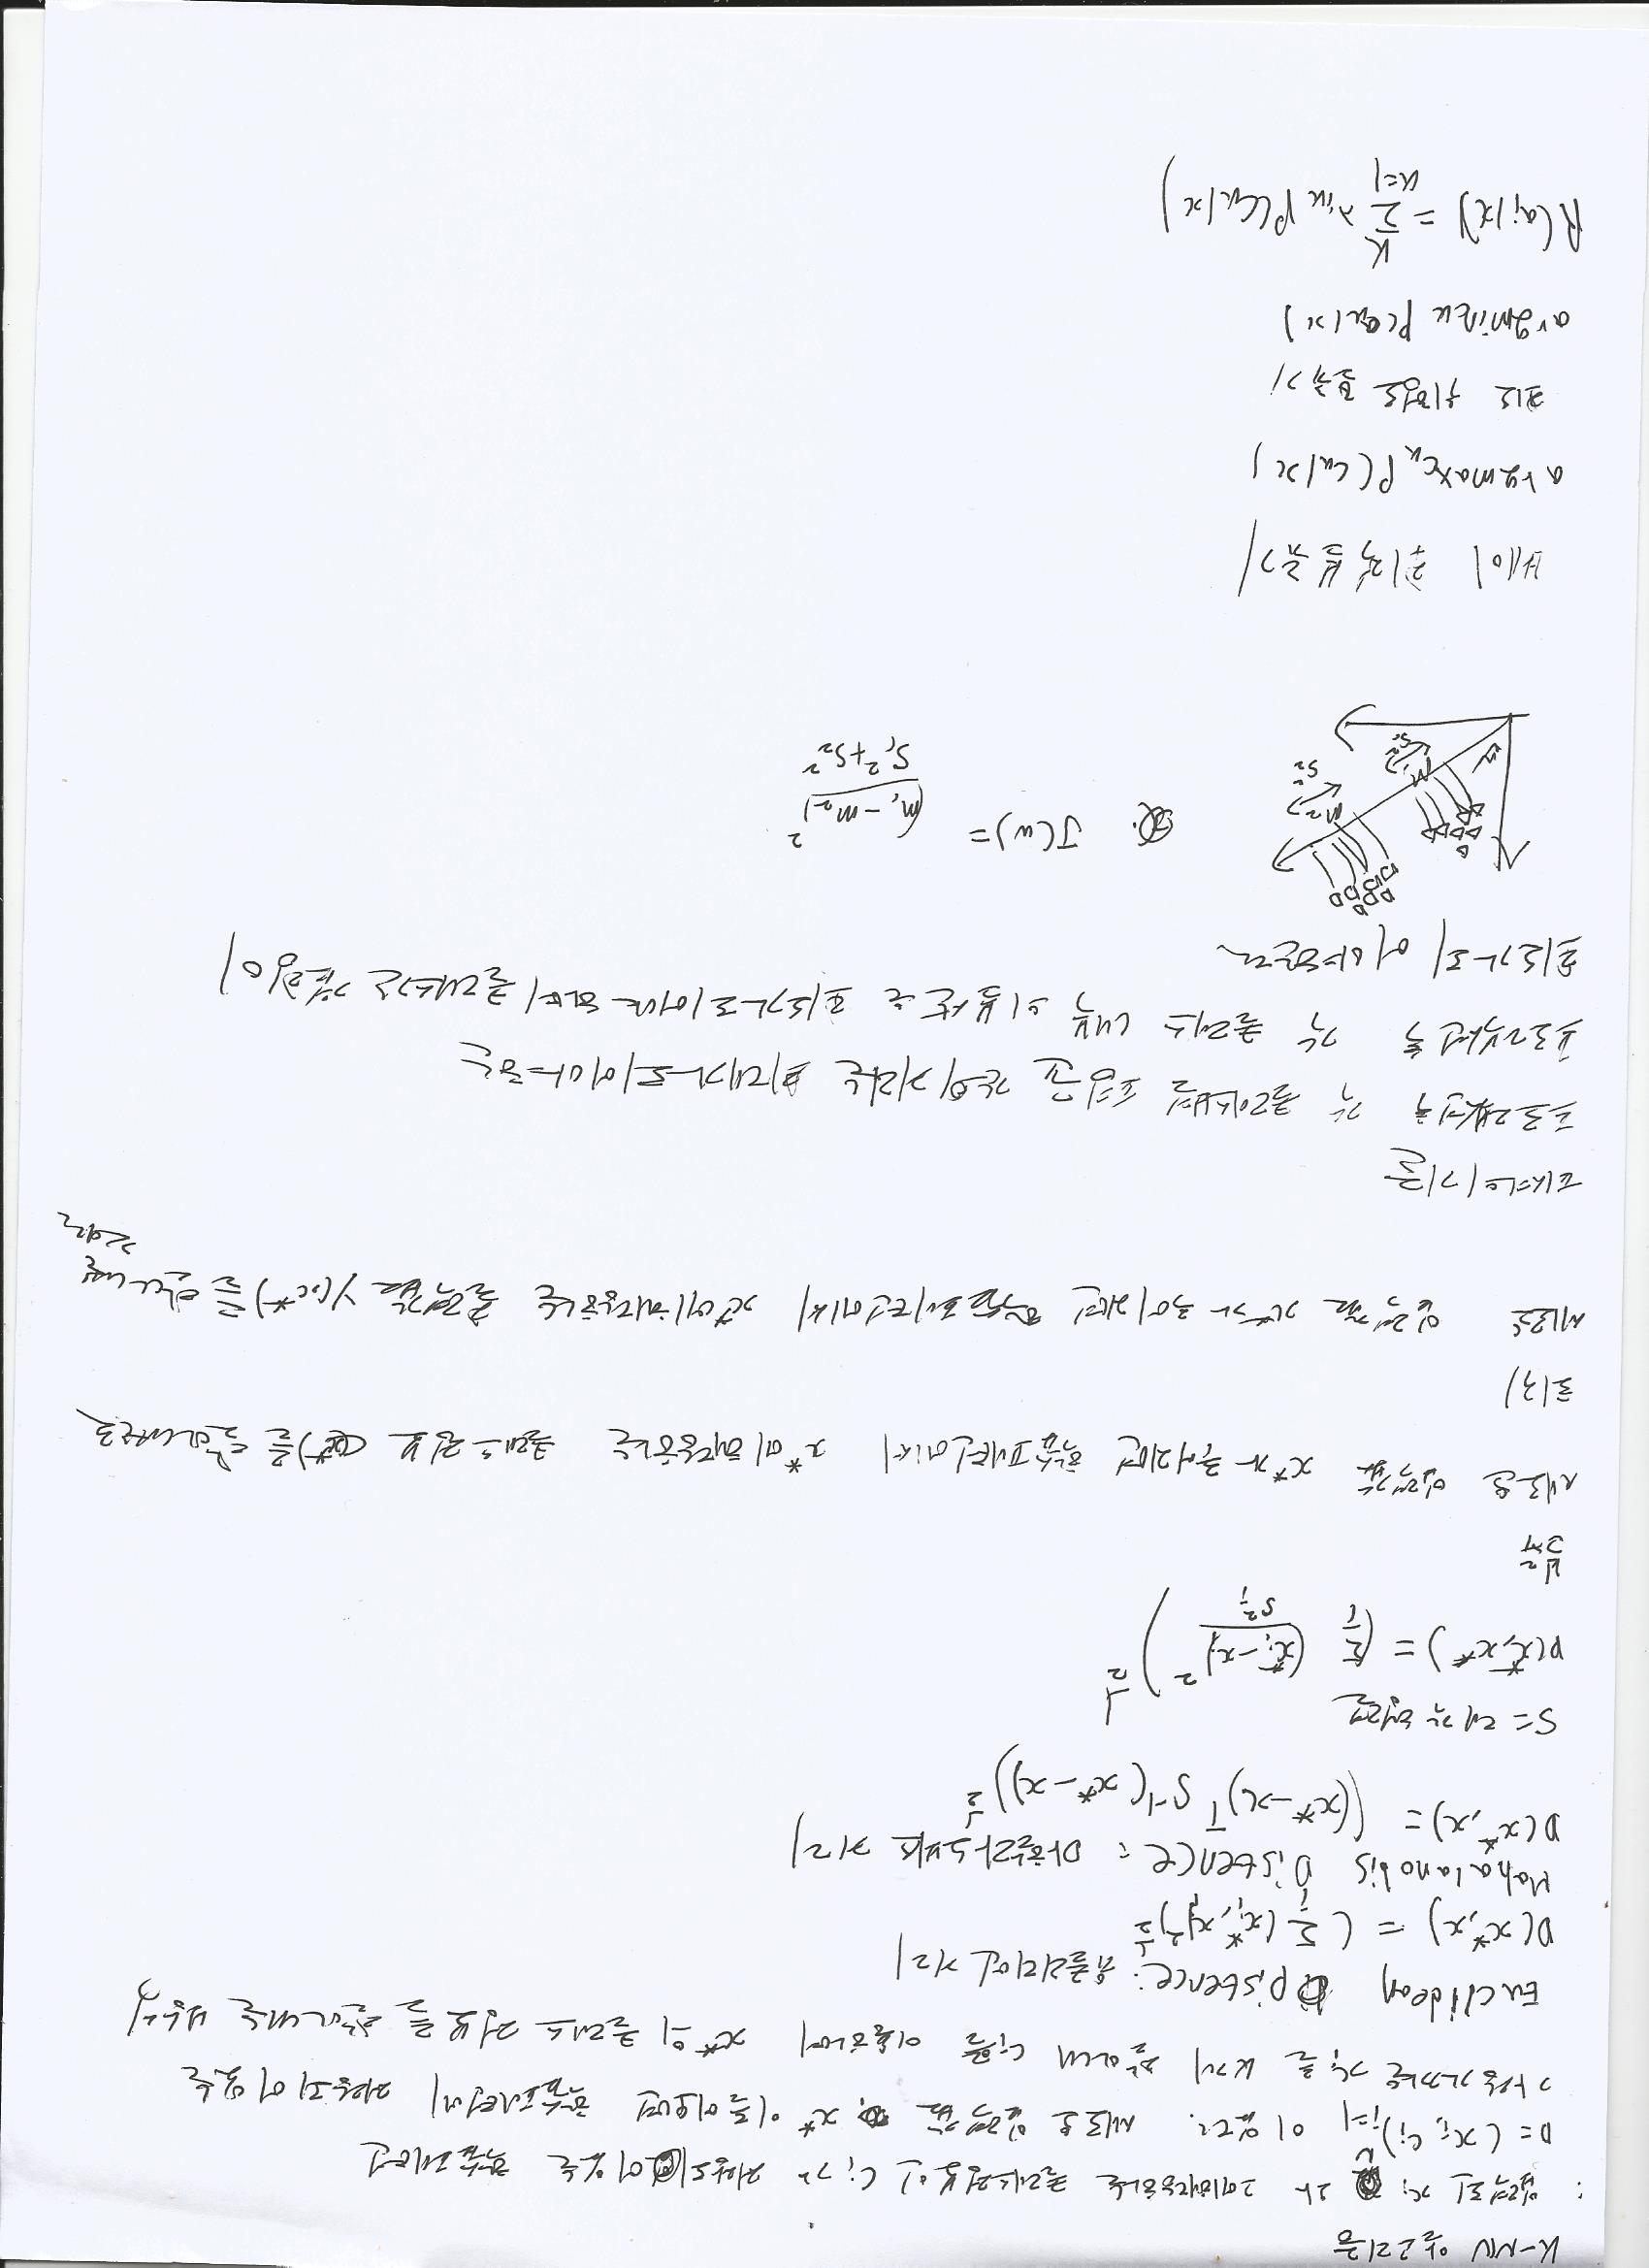 K-NN 알고리즘
: 입력된 xᵢ 와 그에해당하는 클래스정보인 Cᵢ가 저장되어 있는 학습패턴
D = (xᵢ, cᵢ)ᵢ₌₁ᴺ 이 있다. 새로운 입력값 x* 이들어오면 학습패턴에 저장되어 있는
가장가까운 xᵢ를 K개 찾아내 cᵢ를 이용하여 x*의 클래스 정보를 찾아내는 방식
Euclidean Distence: 유클리디언 거리
D(x*,x) = (Σᵢ (xᵢ*, xᵢ)²)^½
Mahalanobis Distence: 마할라노비스 거리
D(x*,x) = ((x*-x)ᵀ S⁻¹(x*-x))^½
S = 대각행렬
D(x*,x*) = (Σᵢ (xᵢ*-xᵢ)²/Sᵢ²)^½
분류
새로운 입력값 x*가 주어지면 학습패턴에서 x*에 해당하는 클래스정보 (x*)를
회귀
새로운 입력값 x*가 주어지면 학습패턴에서 x*에해당하는 출력값 y(x*)를
피셔의기준
프로젝션후 각 클래스별 평균 간의거리는 최대가되어야하는
프로젝션 후 각 클래스 내부의 분산은 최소가되어야 하며 클래스간 겹침이
최소가 되어야한다
w m₁ s₁² m₂ s₂²
J(w) = (m₁-m₂)²/(S₁²+S₂²)
베이 최적분류기
argmax_Cₖ P(Cₖ|x)
최소 위험도 분류기
argminₖ P(aₖ|x)
R(aᵢ|x) = Σₖ₌₁ᴷ λᵢₖ P(Cₖ|x)